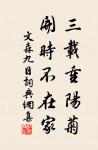 三載重陽菊
開時不在家
文森九日詞典網集